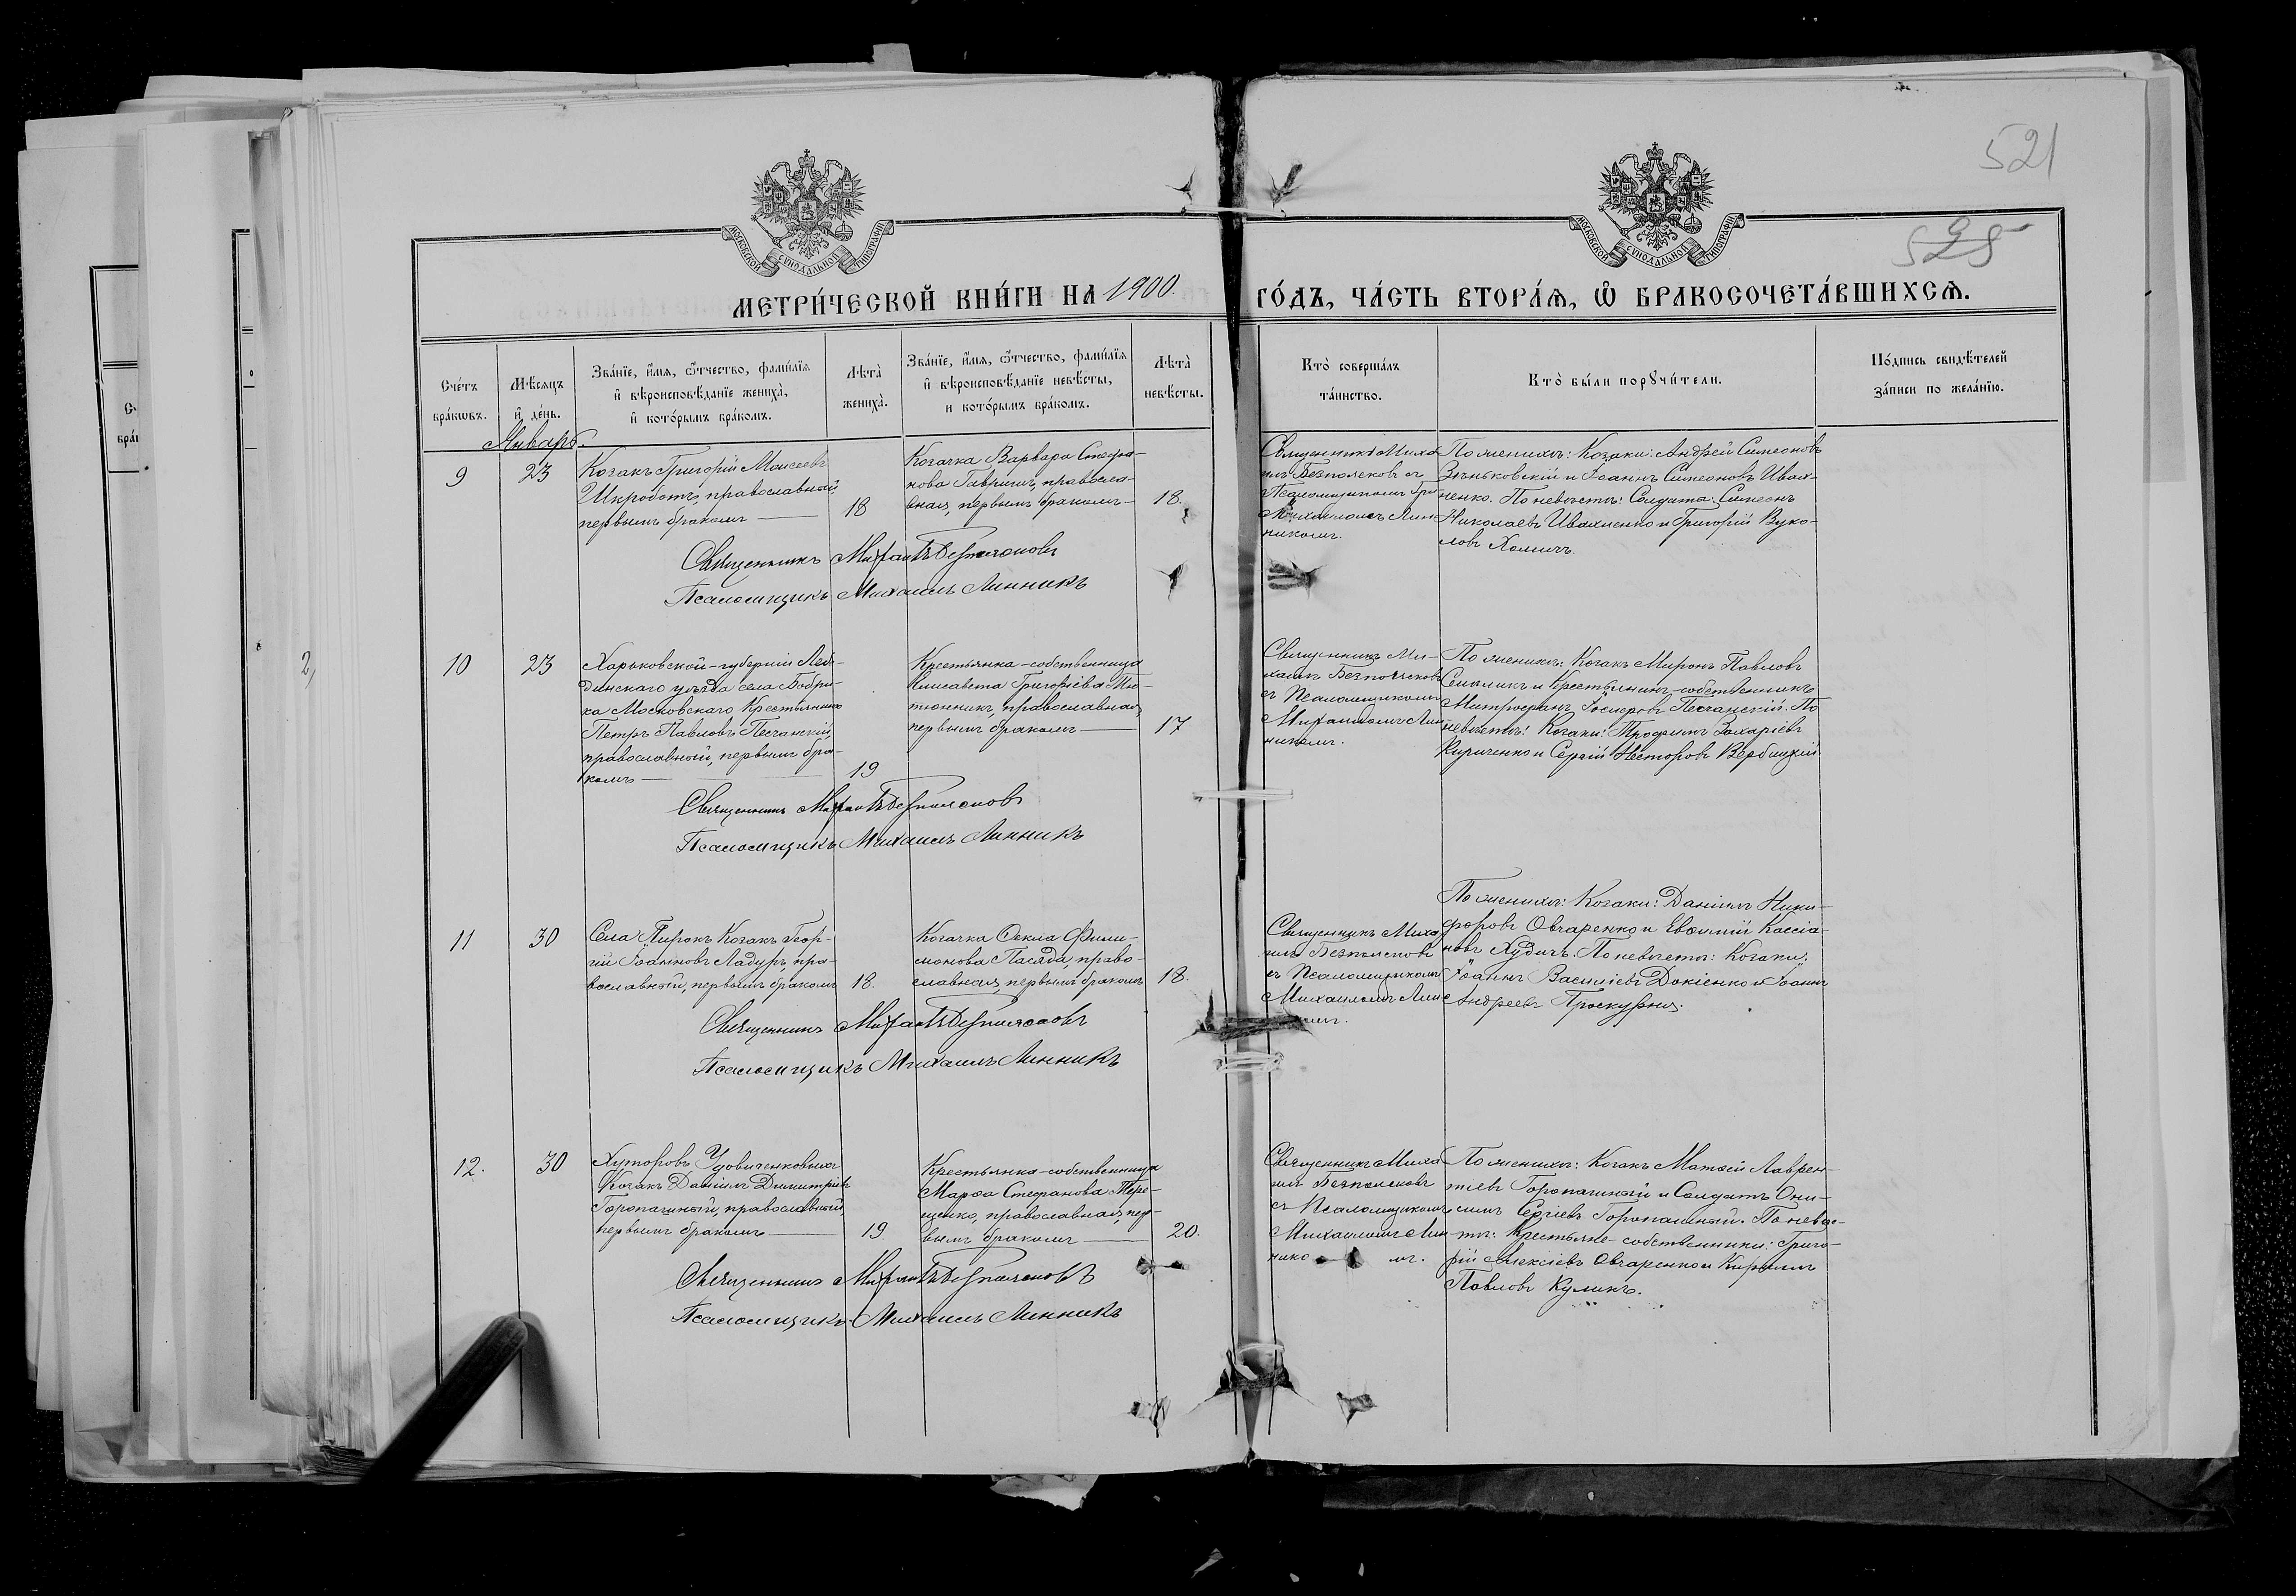 521
525
МОСКОВСКОЙ СУНОДАЛЬНОЙ ТИПОГРАФІИ
МОСКОВСКОЙ СУНОДАЛЬНОЙ ТИПОГРАФІИ
МЕТРИ́ЧЕСКОЙ КНИ́ГИ НА 1900. ГО́ДЪ, ЧА́СТЬ ВТОРА́Ѧ, Ѡ БРАКОСОЧЕТА́ВШИХСѦ.
Сче́тъ
бра́кѡвъ.
Мѣ́сяцъ
и҆ де́нь.
Зва́нїе, и҆́мѧ, ѻ҆́тчество, фами́лїѧ
и҆ вѣроисповѣ́данїе жениха̀,
и҆ кото́рымъ бра́комъ.
Лѣта̀
жениха̀.
Зва́нїе, и҆́мѧ, ѻ҆́тчество, фами́лїѧ
и҆ вѣроисповѣ́данїе невѣ́сты,
и кото́рымъ бра́комъ.
Лѣта̀
невѣ́сты.
Кто̀ соверша́лъ
та́инство.
Кто̀ бы́ли порꙋчи́тели.
По́дпись свидѣ́телей
за́писи по жела́нїю.
Январь.
9
23
Козакъ Григорій Моисеевъ
Шкроботъ, православный
первымъ бракомъ
18
Козачка Варвара Стефа-
нова Гавришъ, правосла-
вная, первымъ бракомъ
18.
Священникъ Миха
илъ Безпалсковъ съ
Псаломщикомъ
Михаиломъ Лин
никомъ.
По женихѣ: Козаки: Андрей Симеоновъ
Зѣньковскій и Іоаннъ Симеоновъ Ивах-
ненко. По невѣстѣ: Солдата: Симеонъ
Николаевъ Ивахненко и Григорій Вуко-
ловъ Хомичъ.
Священникъ Михаилъ
Псаломщикъ Михаилъ Линникъ
10
23
Харьковской-губерніи Лебе-
динскаго уѣзда села Бобри-
ка Московскаго Крестьянинъ
Петръ Павловъ Песчанскій,
православный, первымъ бра-
комъ
19
Крестьянка-собственница
Елисавета Григоріева Тю-
тюнникъ, православная,
первымъ бракомъ
17
Священникъ Ми-
хаилъ
съ Псаломщикомъ
Михаиломъ Лин
никомъ.
По женихѣ: Козакъ Миронъ Павловъ
Семликъ и Крестьянинъ-собственникъ
Митрофанъ Песчанскій. По
невѣстѣ: Козаки: Трофимъ Захаріевъ
Кириченко и Сергій Несторовъ Вербицкій.
Священникъ Михаилъ
Псаломщикъ Михаилъ Линникъ
11
30
Села Пирокъ Козакъ Геор-
гій Іоанновъ Ладуръ, пра-
вославный, первымъ бракомъ
18.
Козачка Ѳекла Фили-
монова Пасяда, право-
славная, первымъ бракомъ
18.
Священникъ Миха
илъ
съ Псаломщикомъ
Михаиломъ Лин
По женихѣ: Козаки: Даніилъ Ники-
форовъ Овчаренко и Евѳимій Кассіа-
новъ Худичъ. По невѣстѣ: Козаки:
Іоаннъ Василіевъ Докіенко и Іоаннъ
Андреевъ Проскурня.
Священникъ Михаилъ
Псаломщикъ Михаилъ Линникъ
12.
30
Хуторовъ Удовиченковыхъ
Козакъ Даніилъ Димитріевъ
Горопашный, православный,
первымъ бракомъ
19.
Крестьянка-собственница
Марѳа Стефанова Тере-
щенко, православная, пер-
вымъ бракомъ
20.
Священникъ Миха
илъ
съ Псаломщикомъ
Михаиломъ Лин
нико мъ.
По женихѣ: Козакъ Матѳей Лаврен-
тіевъ Горопашный и Солдатъ Они-
симъ Сергіевъ Горопашный. По невѣс-
тѣ: Крестьяне-собственники: Григо-
рій Алексіевъ Овчаренко и Кириллъ
Павловъ Куликъ.
Священникъ Михаилъ
Псаломщикъ Михаилъ Линникъ